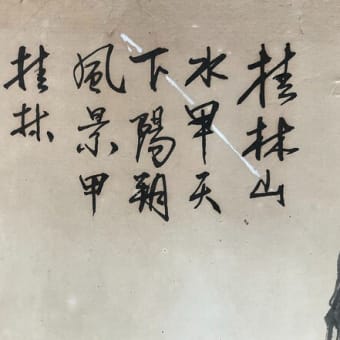 桂林山
水甲天
下陽朔
風景甲
桂林